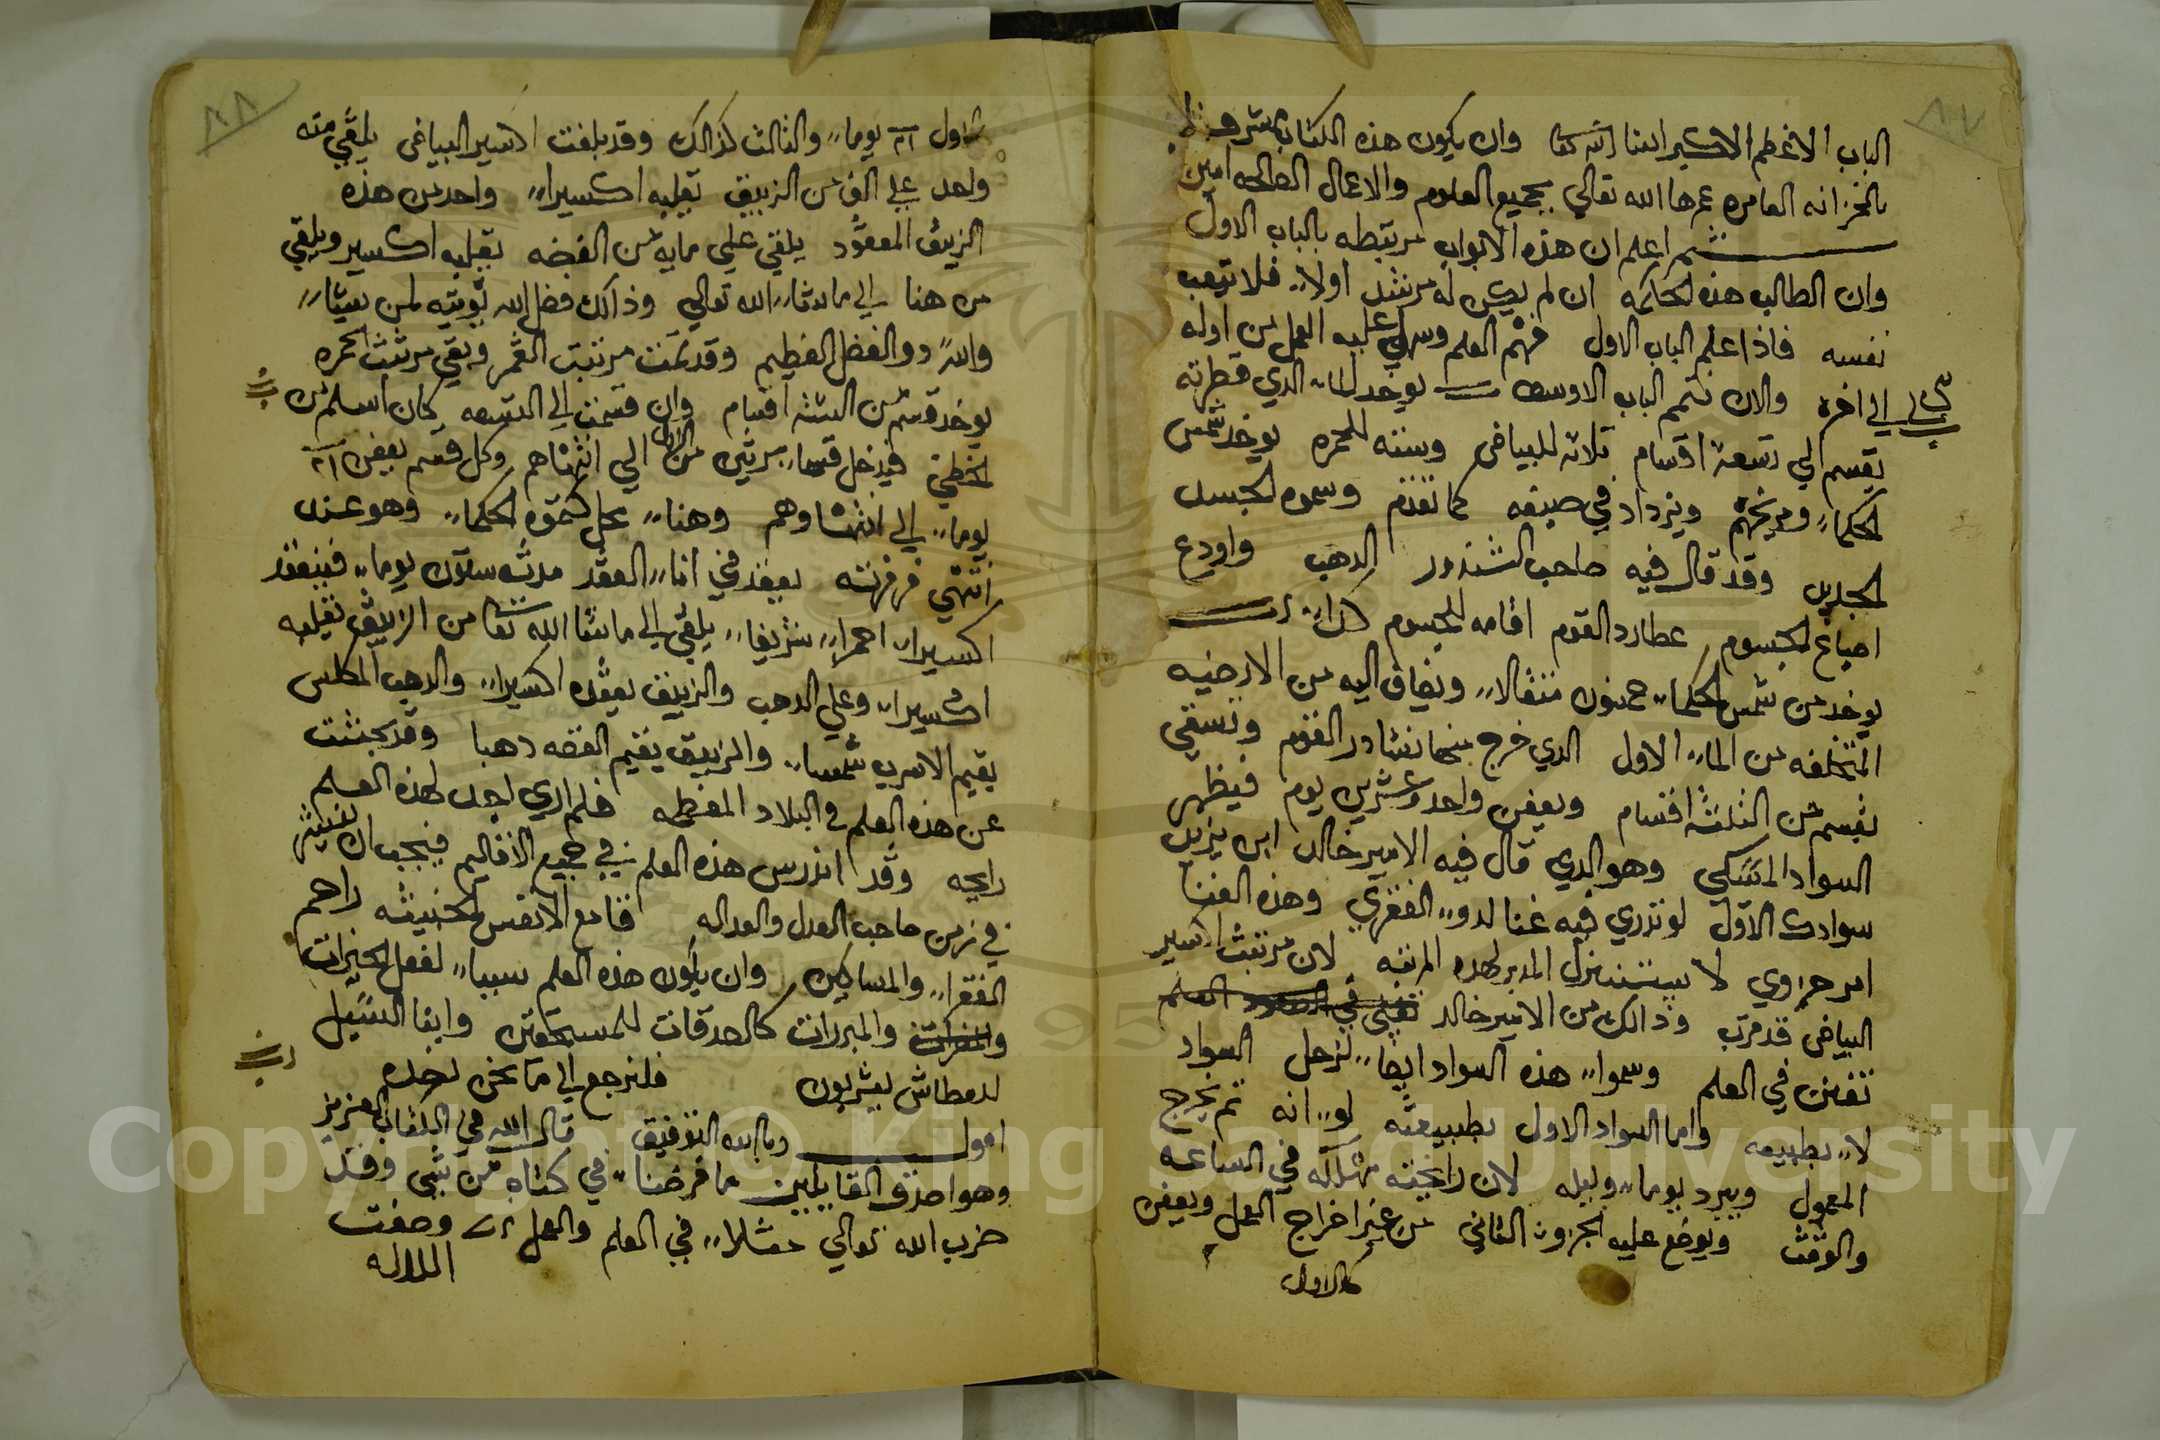 ٨٧
الباب الاعظم الاكسير ان شا الله تعا وان يكون هذه الكتاب مشرف
بالخزانه العامره عمرها الله تعالي بجميع العلوم والاعمال الصالحه امين
ثم اعلم ان هذه الابواب مرتبطه بالباب الاول
وان الطالب هذه الحكمه ان لم يكن له مرشد اولا فلا تتعب
نفسه فاذا علم الباب الاول فهم العلم وسهل عليه العمل من اوله
الي اخره والان نتمم الباب الاوسط يوخد الماء الدي قطرته
يقسم الي تسعة اقسام تلاته للبياض وسته للحمره يوخد شمس
الحكماء ومريخهم ويزداد في صبغه كما تقدم وسموه الجسد
الجديد وقد قال فيه صاحب الشذور الدهب واودع
اصباغ الجسوم عطارد القوم اقامه للجسوم
يوخد من شمس الحكماء خمسون مثقالا ويضاف اليه من الارضيه
المتخلفه من الماء الاول الدي خرج منها نشادر القوم وتسقي
بقسم من الثلثة اقسام ويعفن واحد وعشرين يوم فيظهر
السواد المسكي وهو الدي قال فيه الامير خالد ابن يزيد
سوادك الاول لو تدري فيه غنا لدو الفقري وهذه الغنا
لا يستنزل المدبر لهده المرتبه لان مرتبت اكسير
البياض قد قرب وذالك من الامير خالد العلم
تفنن في العلم وسموا هذه السواد ايضا لزحل السواد
لا بطبيعه واما السواد الاول بطبيعته لو انه تم يخرج
المعمول ويبرد يوما وليله لان رايحته مهلكه في الساعه
والوقت ويوضع عليه الجزو الثاني من غير اخراج العمل ويعفن
كالاول
٨٨
الاول ٢١ يوما والثالث كذالك وقد بلغت اكسير البياض يلقي منه
واحد علي الف من الزيبق تقلبه اكسيرا واحد من هذه
الزيبق المعقود يلقي علي مايه من الفضه تقلبه اكسير ويلقي
من هنا الي ما شاء الله تعالي وذالك فضل الله يوتيه لمن يشاء
والله دو الفضل العظيم وقد تمت مرتبت القمر وبقي مرتبت الحمره
يوخد قسم من الستة اقسام وان قسمت الي التسعه كان اسلم من
الخطي فيدخل قسما من الاول الي انتهاهم وكل قسم يعفن ٢١
يوما الي انتهاوهم وهنا محل كتموه الحكماء وهو عند
انتهي فرفرته يعقد في اناء العقد مدته سلاثون يوما فينعقد
اكسيرا احمرا شريفا يلقي الي ما شا الله تعا من الزيبق تقلبه
اكسيرا وعلي الدهب والزيبق يعقده اكسيرا والدهب المكلس
يقيم الاسرب شمسا والزيبق يقيم الفضه دهبا وقد بحثت
عن هذه العلم في البلاد المعظمه فلم اري اجد لهذه العلم
رايحه وقد اندرس هذه العلم في جميع الاقاليم فيجب ان ينتشر
في زمن صاحب العدل والعداله قامع الانفس الخبيثه راحم
الفقراء والمساكين وان يكون هذه العلم سببا لفعل الخيرات
والمبررات كالصدقات للمستحقين وابنا السبيل
لدمطاش يشربون فلنرجع الي ما نحن نخده
اقول وبالله التوفيق قال الله في الكتاب العزيز
وهو اصدق القايلين ما فرضنا في كتابه من شي وقد
ضرب الله تعالي مثلا في العلم والعمل وصفت
الدلاله